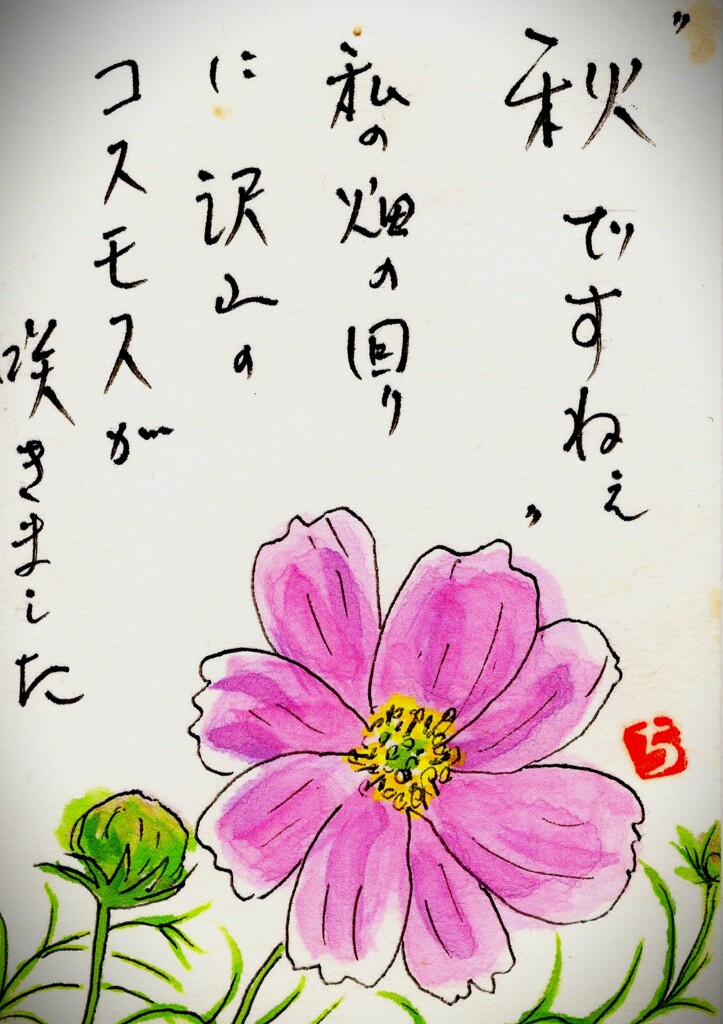 〃秋ですねぇ〃
私の畑の回り
に沢山の
コスモスが
咲きました
ち